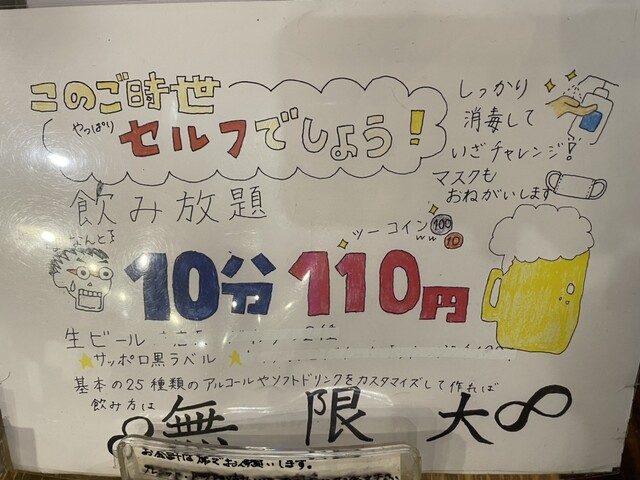 このご時世
やっぱり セルフでしょう!
しっかり
消毒して
いざチャレンジ!
マスクも
おねがいします
飲み放題
なんと
ツーコイン 100
ww 10
10分 110円
生ビール
★サッポロ黒ラベル★
基本の25種類のアルコールやソフトドリンクをカスタマイズして作れば
飲み方は
∞無限大∞
お会計は席でお願いします。